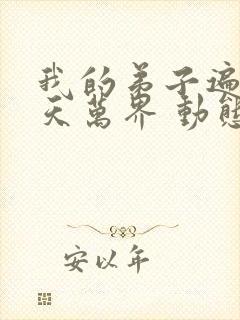 我的弟子遍
天萬界 動態
安以年